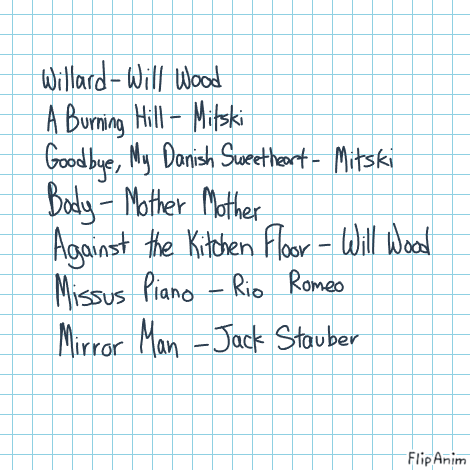 Willard - Will Wood
A Burning Hill - Mitski
Goodbye, My Danish Sweetheart - Mitski
Body - Mother Mother
Against the Kitchen Floor - Will Wood
Missus Piano - Rio Romeo
Mirror Man - Jack Stauber
FlipAnim